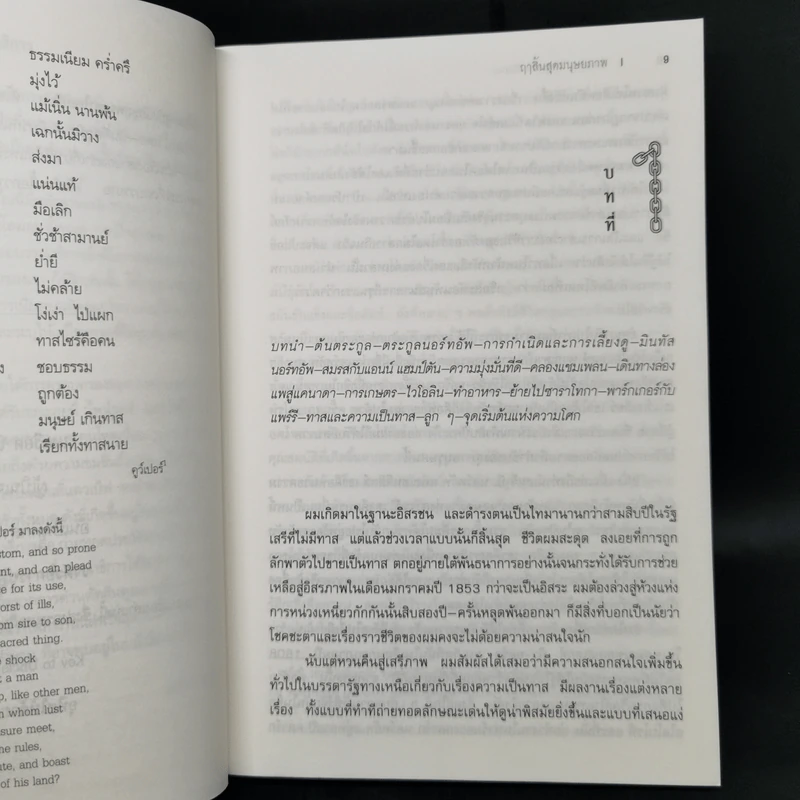 ธรรมเนียม คร่ำครึ
มุ่งไว้
แม้เนิ่น นานพ้น
เฉกนั้นมิวาง
ส่งมา
แน่นแท้
มือเลิก
ชั่วช้าสามานย์
ย่ำยี
ไม่คล้าย
โง่เง่า ไป่แผก
ทาสไซร้คือคน
ชอบธรรม
ถูกต้อง
มนุษย์ เกินทาส
เรียกทั้งทาสนาย
คูว์เปอร์
เปอร์ มาลงดังนี้
stom, and so prone
nt, and can plead
e for its use,
orst of ills,
om sire to son,
acred thing.
e shock
t a man
o, like other men,
n whom lust
sure meet,
ne rules,
ute, and boast
of his land?
ฤๅสิ้นสุดมนุษยภาพ | 9
บ
ท
ที่
บทนำ–ต้นตระกูล–ตระกูลนอร์ทอัพ–การกำเนิดและการเลี้ยงดู–มินทัส
นอร์ทอัพ–สมรสกับแอนน์ แฮมป์ตัน–ความมุ่งมั่นที่ดี–คลองแชมเพลน–เดินทางล่อง
แพสู่แคนาดา–การเกษตร–ไวโอลิน–ทำอาหาร–ย้ายไปซาราโทกา–พาร์กเกอร์กับ
แพร์รี–ทาสและความเป็นทาส–ลูก ๆ–จุดเริ่มต้นแห่งความโศก
ผมเกิดมาในฐานะอิสรชน และดำรงตนเป็นไทมานานกว่าสามสิบปีในรัฐ
เสรีที่ไม่มีทาส แต่แล้วช่วงเวลาแบบนั้นก็สิ้นสุด ชีวิตผมสะดุด ลงเอยที่การถูก
ลักพาตัวไปขายเป็นทาส ตกอยู่ภายใต้พันธนาการอย่างนั้นจนกระทั่งได้รับการช่วย
เหลือสู่อิสรภาพในเดือนมกราคมปี 1853 กว่าจะเป็นอิสระ ผมต้องล่วงสู่ห้วงแห่ง
การหน่วงเหนี่ยวกักกันนั้นสิบสองปี–ครั้นหลุดพ้นออกมา ก็มีสิ่งที่บอกเป็นนัยว่า
โชคชะตาและเรื่องราวชีวิตของผมคงจะไม่ด้อยความน่าสนใจนัก
นับแต่หวนคืนสู่เสรีภาพ ผมสัมผัสได้เสมอว่ามีความสนอกสนใจเพิ่มขึ้น
ทั่วไปในบรรดารัฐทางเหนือเกี่ยวกับเรื่องความเป็นทาส มีผลงานเรื่องแต่งหลาย
เรื่อง ทั้งแบบที่ทำทีถ่ายทอดลักษณะเด่นให้ดูน่าพิสมัยยิ่งขึ้นและแบบที่เสนอแง่